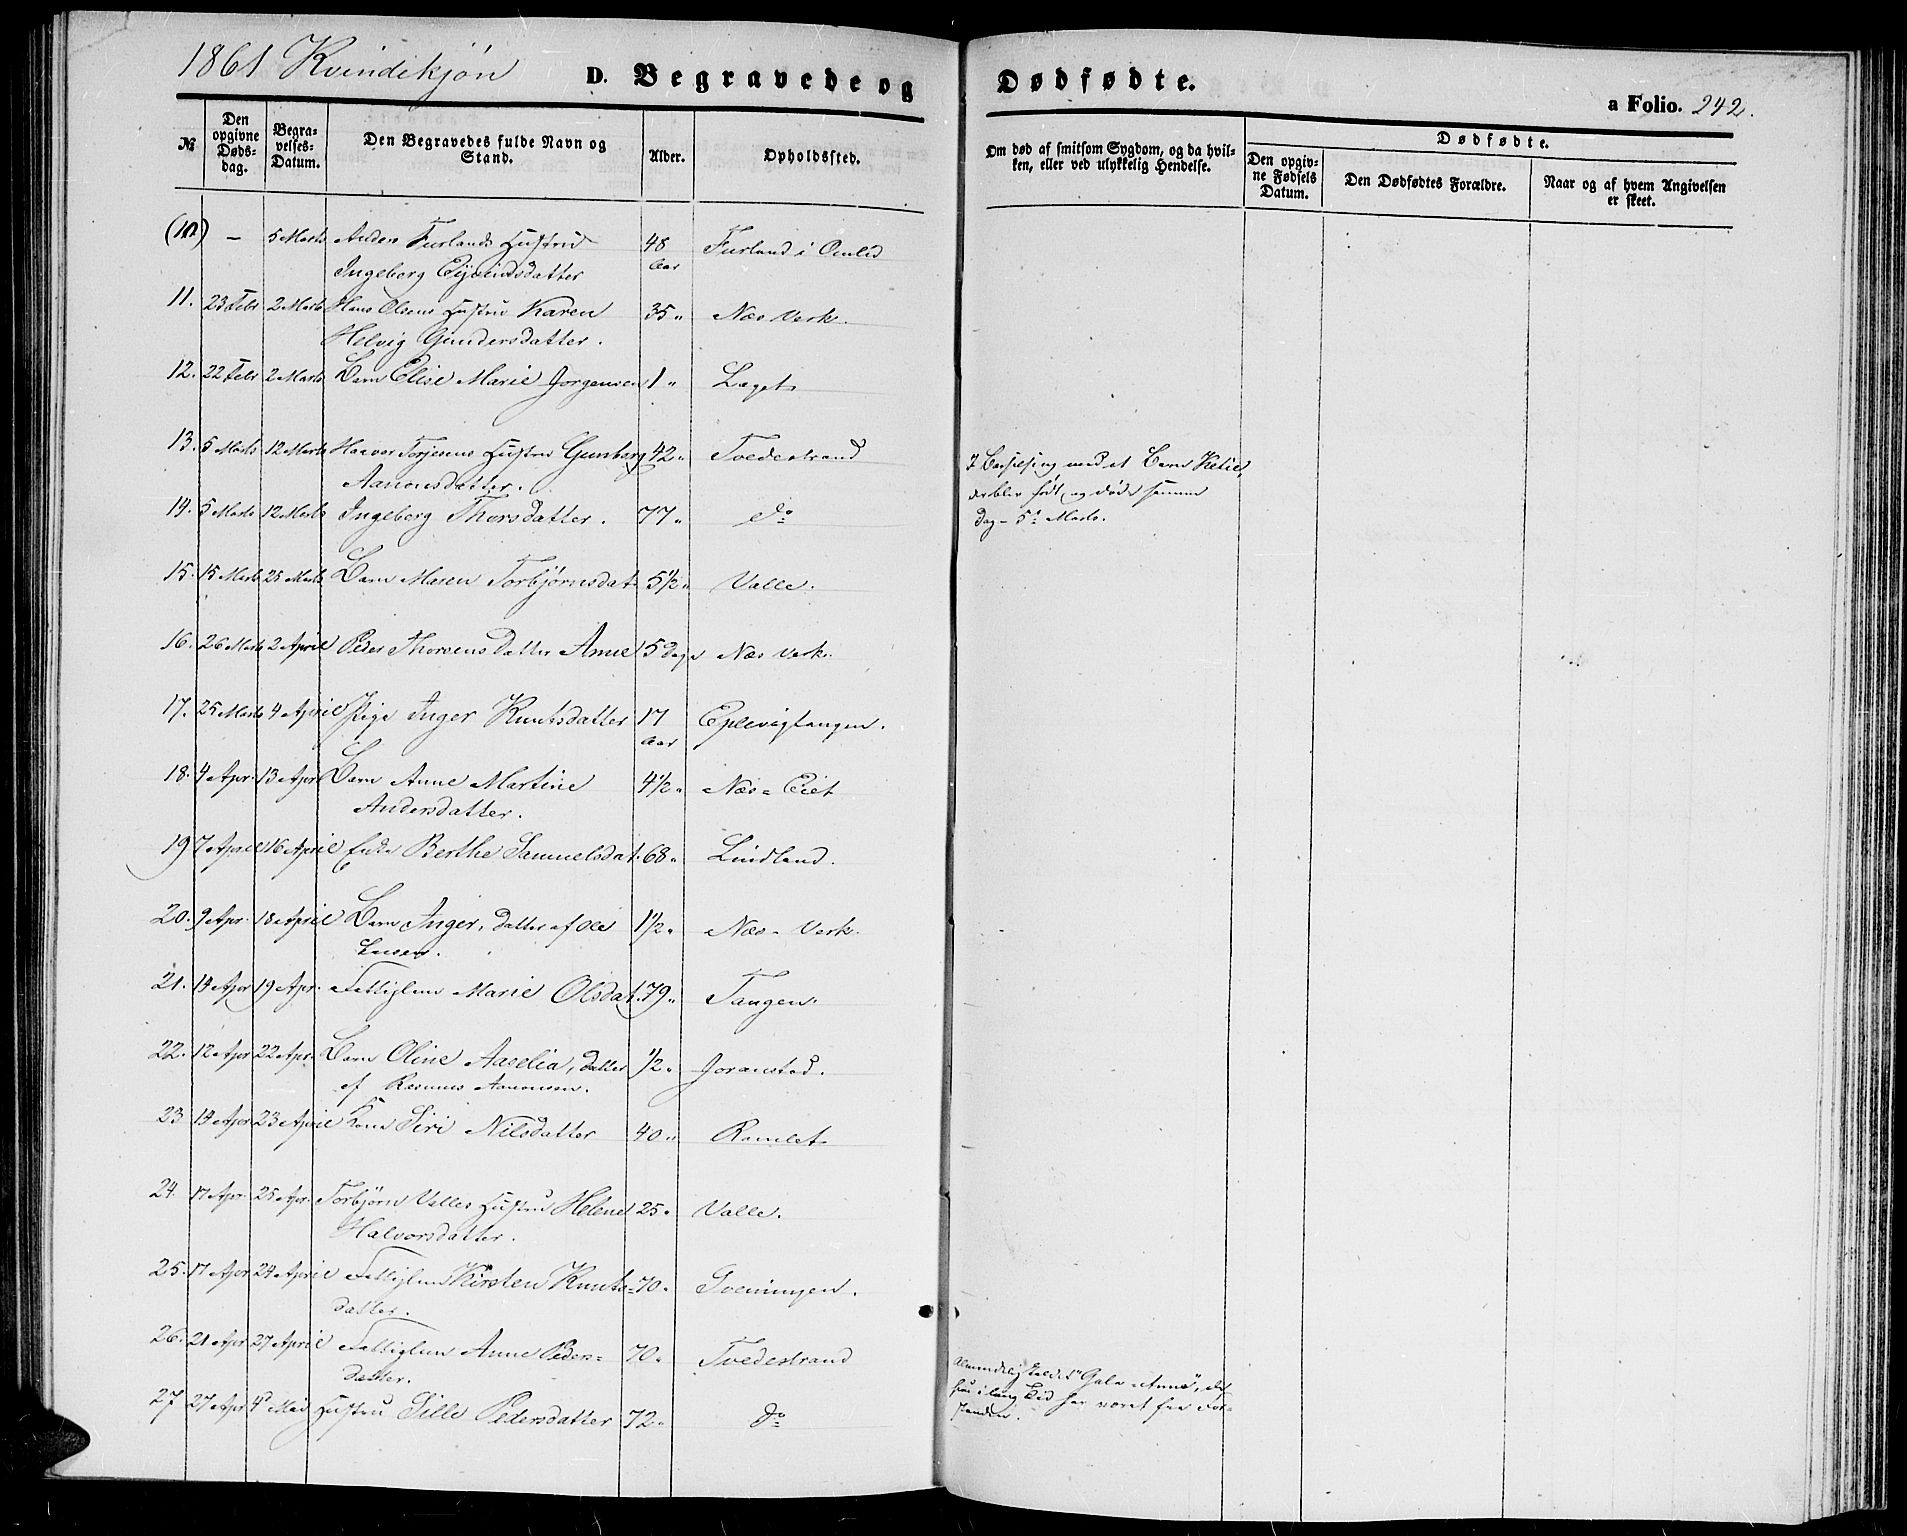 1861 Kvindekjøn D. Begravede og Dødfødte.
a Folio. 242.
№
Den opgivne Døds-dag.
Begra-velses-Datum.
Den Begravedes fulde Navn og Stand.
Alder.
Opholdssted.
Om død af smitsom Sygdom, og da hvil-
ken, eller ved ulykkelig Hendelse.
Dødfødte.
Den opgiv-
ne Fødsels
Datum.
Den Dødfødtes Forældre.
Naar og af hvem Angivelsen
er skeet.
(10) – 5 Marts Anders Furlands Hustru 48 Aar Furland i Omlid
Ingeborg Eivindsdatter
11. 23 Febr 2 Marts Hans Olsens Hustru Karen 35 " Næs Verk.
Helvig Gundersdatter.
12. 22 Febr 2 Marts Barn Elise Marie Jørgensen 1 " Laget
13. 5 Marts 12 Marts Haavor Torjesens Hustru Gunborg 42 " Tvedestrand
Aanonsdatter.
I Barselseng med et Barn Ketil,
der blev født og døde samme
Dag – 5t Marts.
14. 5 Marts 12 Marts Ingeborg Thorsdatter. 77 " do
15. 15 Marts 25 Marts Barn Maren Torbjørnsdat 5½ " Valle.
16. 26 Marts 2 April Peder Thorsens Datter Anne 5 Dage Næs Verk.
17. 25 Marts 4 April Pige Inger Knutsdatter 17 Aar Eplevigtangen.
18. 4 Apr. 13 Apr Barn Anne Martine 4½ " Næs = Eiet
Andersdatter.
19 7 April 16 April Enke Berthe Samuelsdat. 68 " Lindland.
20. 9 Apr. 18 April Barn Inger, Datter af Ole 1½ " Næs = Verk.
Larsen.
21. 14 Apr 19 Apr. Fattiglem Marie Olsdat. 79 " Tangen.
22. 12 Apr 22 Apr. Barn Oline Amelia, Datter ½ " Goranstad.
af Rasmus Aanonsen.
23. 14 Apr 23 April Kone Siri Nilsdatter 40 " Ramlet
24. 17 Apr. 25 Apr. Torbjørn Valles Hustru Helene 25 " Valle.
Halvorsdatter.
25. 17 Apr 24 April Fattiglem Kirsten Knuts= 70 " Goeningen.
datter.
26. 21 Apr 27 April Fattiglem Anne Peders= 70 " Tvedestrand
datter.
Almindelig kaldet "Gale Anne", da
hun i lang Tid har været fra For-
standen.
27 27 Apr 4 Mai Hustru Sille Pedersdatter 72 " do